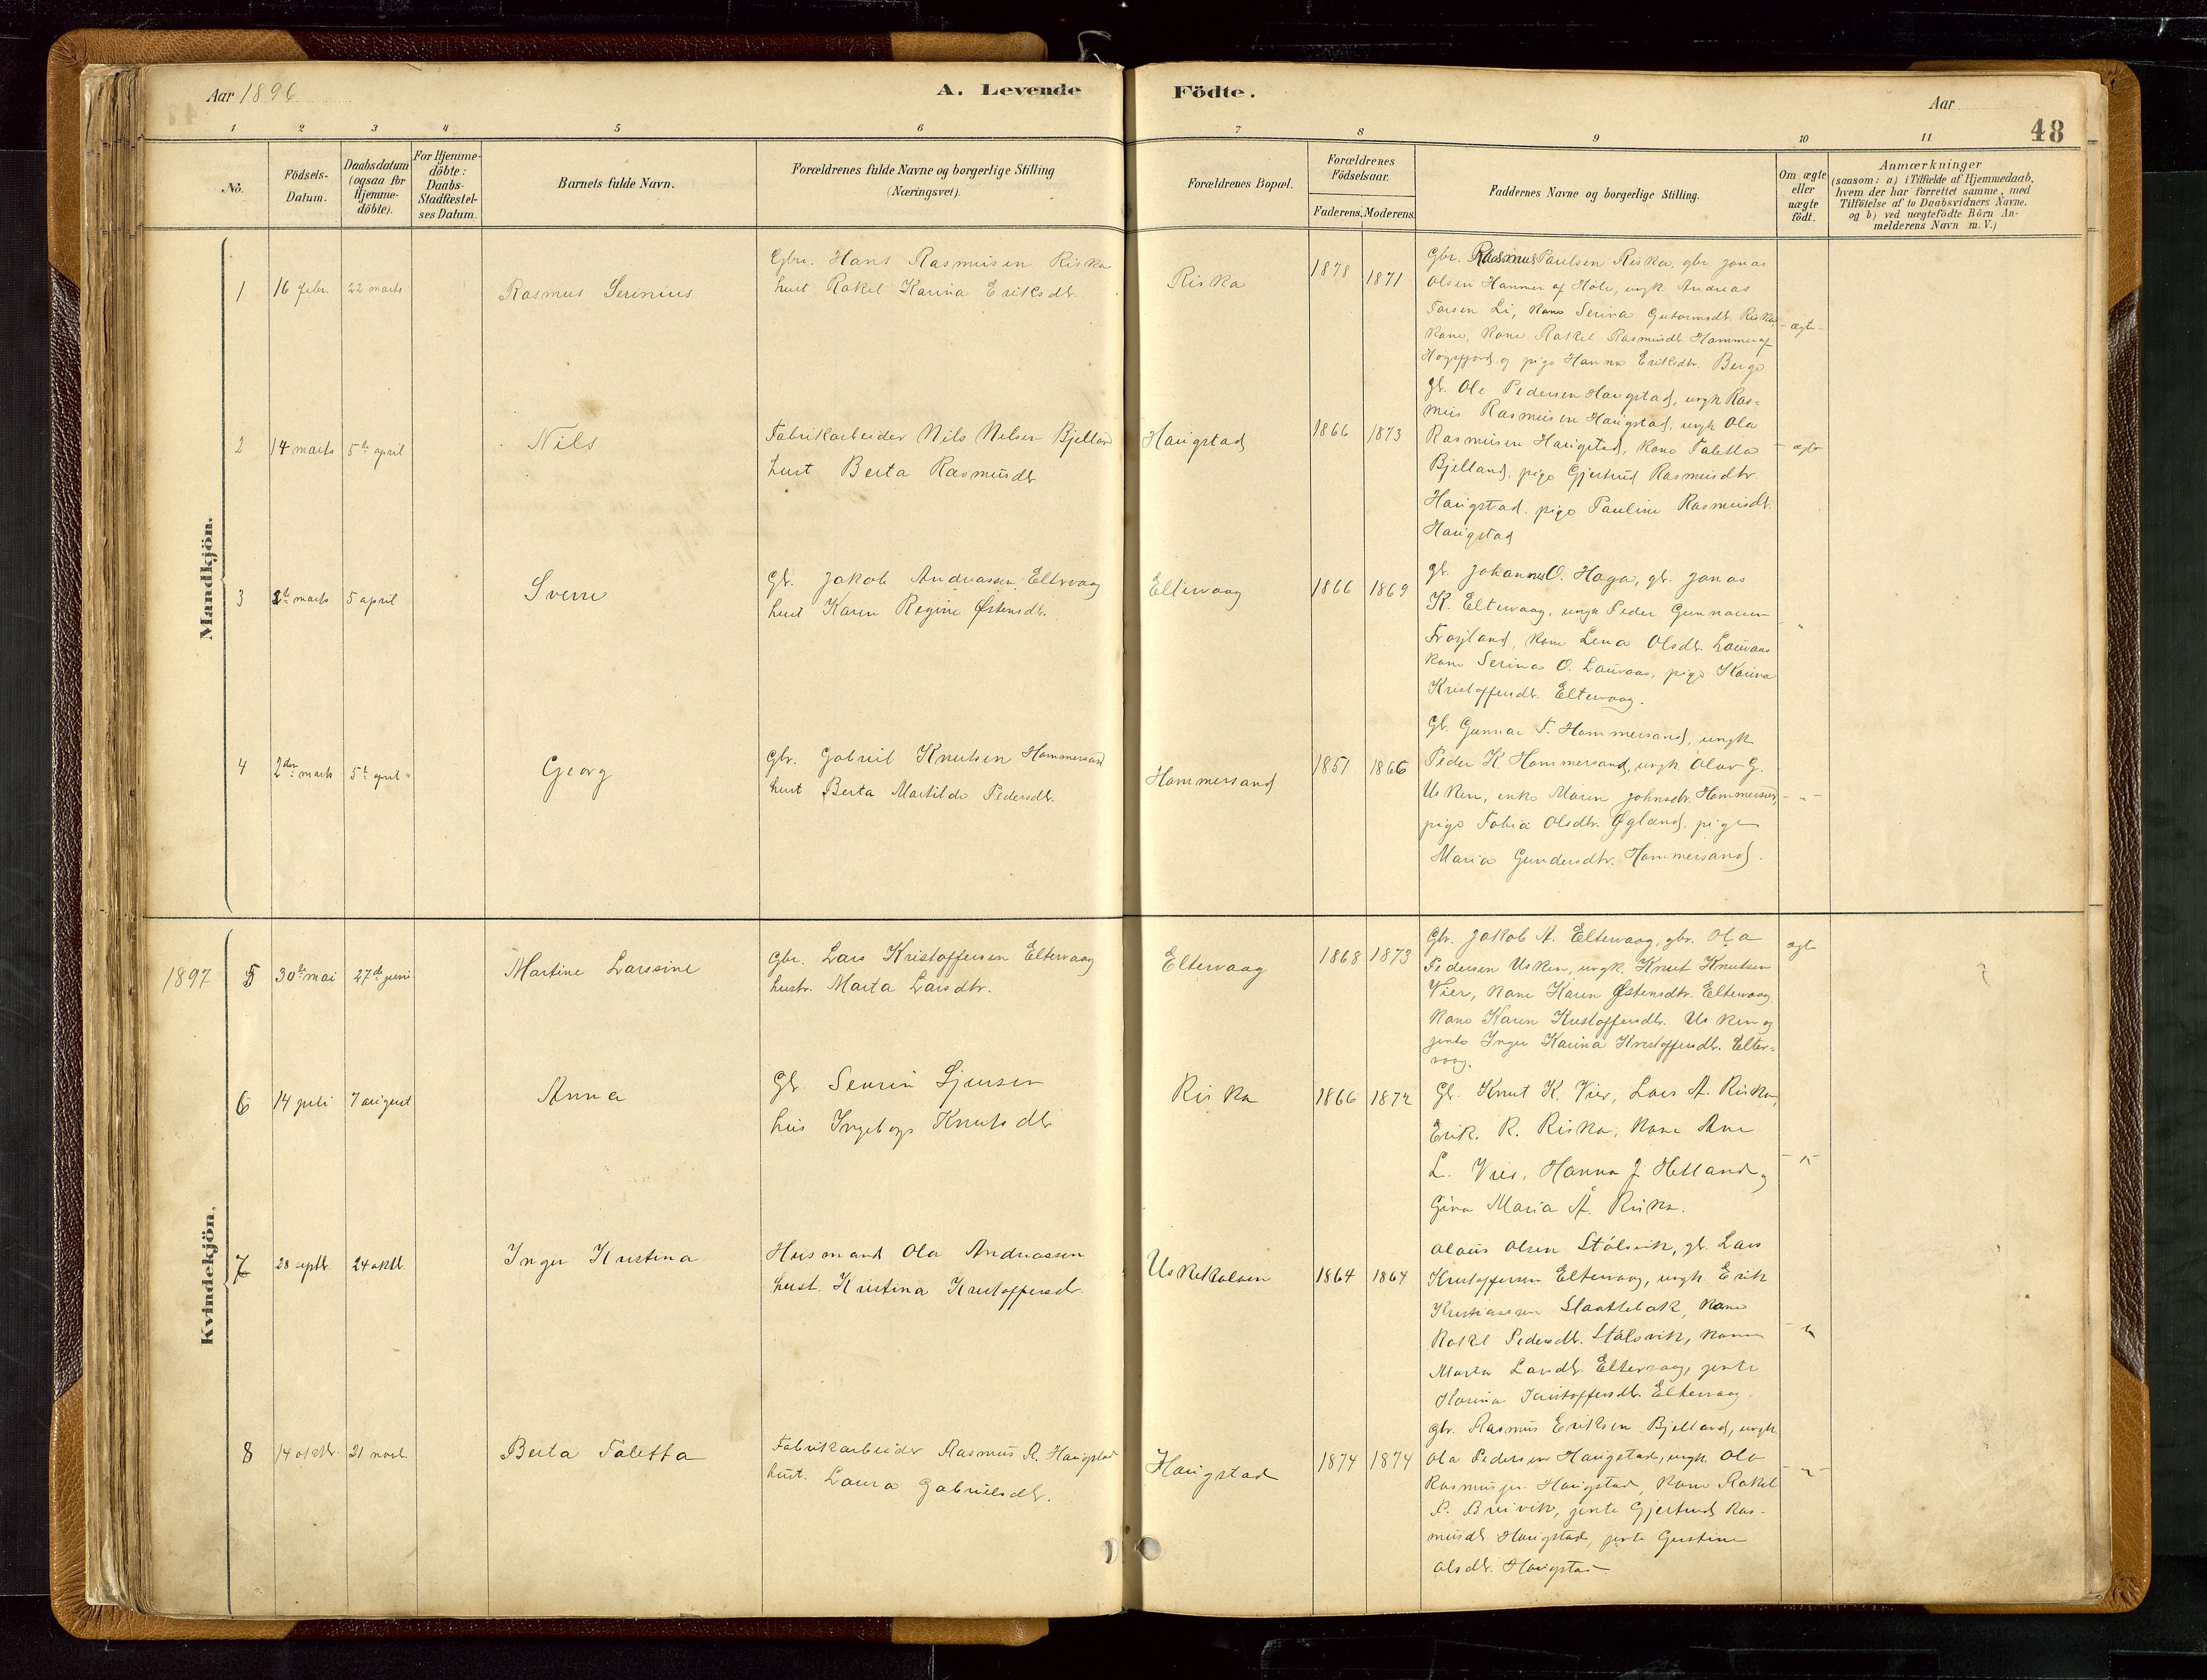 Aar 1896
A. Levende Födte.
Aar
48
1 2 3 4 5 6 7 8 9 10 11
No.
Födsels-
Datum.
Daabsdatum
(ogsaa for
Hjemme-
döbte).
For Hjemme-
döbte:
Daabs-
Stadfæstel-
ses Datum.
Barnets fulde Navn.
Forældrenes fulde Navne og borgerlige Stilling
(Næringsvei).
Forældrenes Bopæl.
Forældrenes
Födselsaar.
Faderens. Moderens.
Faddernes Navne og borgerlige Stilling.
Om ægte
eller
uægte
födt.
Anmærkninger
(saasom: a) i Tilfælde af Hjemmedaab,
hvem der har forrettet samme, med
Tilföielse af to Daabsvidners Navne.
og b) ved uægtefödte Börn An-
melderens Navn m. V.)
Mandkjön.
1 16 febr. 22 marts
Rasmus Serinius
Gbr. Hans Rasmusen Riska
hust Rakel Karina Eriksdt.
Riska
1878 1871
Gbr. Rasmus Paulsen Riska, gbr Jonas
Olsen Hammer af Höle, ungk. Andreas
Torsen Li, kone Serina Gutormsdt. Riska
kone, kone Rakel Rasmusdt. Hammer af
Högsfjord og pige Hanna Eriksdtr. Berge
ægte
2 14 marts 5te april
Nils
Fabrikarbeider Nils Nilsen Bjelland
hust Berta Rasmusdt
Haugstad
1866 1873
gb. Ole Pedersen Haugstad, ungk Ras=
mus Rasmusen Haugstad, ungk Ola
Rasmusen Haugstad, kone Taletta
Bjelland, pige Gjertrud Rasmusdtr.
Haugstad, pige Pauline Rasmusdt.
Haugstad
ægte
3 marts 5 april
Sverre
Gb. Jakob Andreassen Eltervaag
hust Karen Regine Østensdt.
Eltervaag
1866 1869
gb. Johannes O. Haga, gb. Jonas
K. Eltervaag, ungk Peder Gunnarsen
Frøyland, kone Lena Olsdt. Lauraas
kone Serina O. Lauvaas, pige Karina
Kristoffersdt. Eltervaag.
"
4 2den marts 5te april
Georg
Gbr. Gabriel Knutsen Hammersand
hust Berta Martilde Pedersdt.
Hammersand
1851 1866
Gb. Gunnar T. Hammersand, ungk
Peder K. Hammersand, ungk. Olav G.
Usken, enke Maren Johnsdtr. Hammersand,
pige Tobia Olsdtr. Øgland, pige
Maria Gundersdtr. Hammersand.
- " -
Kvindekjön.
1897 5 30te mai 27de juni
Martine Larssine
Gbr. Lars Kristoffersen Eltervaag
hustr. Marta Larsdtr.
Eltervaag
1868 1873
Gbr. Jakob A. Eltervaag, gbr. Ola
Pedersen Usken, ungk. Knut Knutsen
Vier, kone Karen Østensdtr. Eltervaag
kone Karen Kristoffersdt. Usken og
jente Inger Karina Kristoffersdt. Elter=
vaag.
ægte
6 14 juli 7 august
Anna
Gb. Sevrin Sjursen
hus Ingeborg Knutsdtr
Riska
1866 1872
Gb. Knut K. Vier, Lars A. Riska,
Erik R. Riska, kone Ane
L. Vier, Hanna J. Helland og
Gina Maria A. Riska.
- " -
7 28 septb. 24 oktb.
Inger Kristina
Husmand Ola Andreassen
hust. Kristina Kristoffersdtr.
Uskekalven
1864 1864
Olaus Olsen Stølsvik, gb. Lars
Kristoffersen Eltervaag, ungk. Erik
Kristiansen Slaattebak, kone
Rakel Pedersdt. Stølsvik, kone
Marta Larsdt. Eltervaag, jente
Karina Kristoffersdt. Eltervaag.
- " -
8 14 oktbr. 21 novb.
Berta Taletta
Fabrikarbeider Rasmus R. Haugstad
hust. Laura Gabrielsdt.
Haugstad
1874 1874
gbr. Rasmus Eriksen Bjelland, ungk.
Ola Pedersen Haugstad, ungk. Ola
Rasmus jr. Haugstad, kone Rakel
P. Breivik, jente Gjertrud Ras-
musdt. Haugstad, jente Gustine
Olsdt. Haugstad
- " -